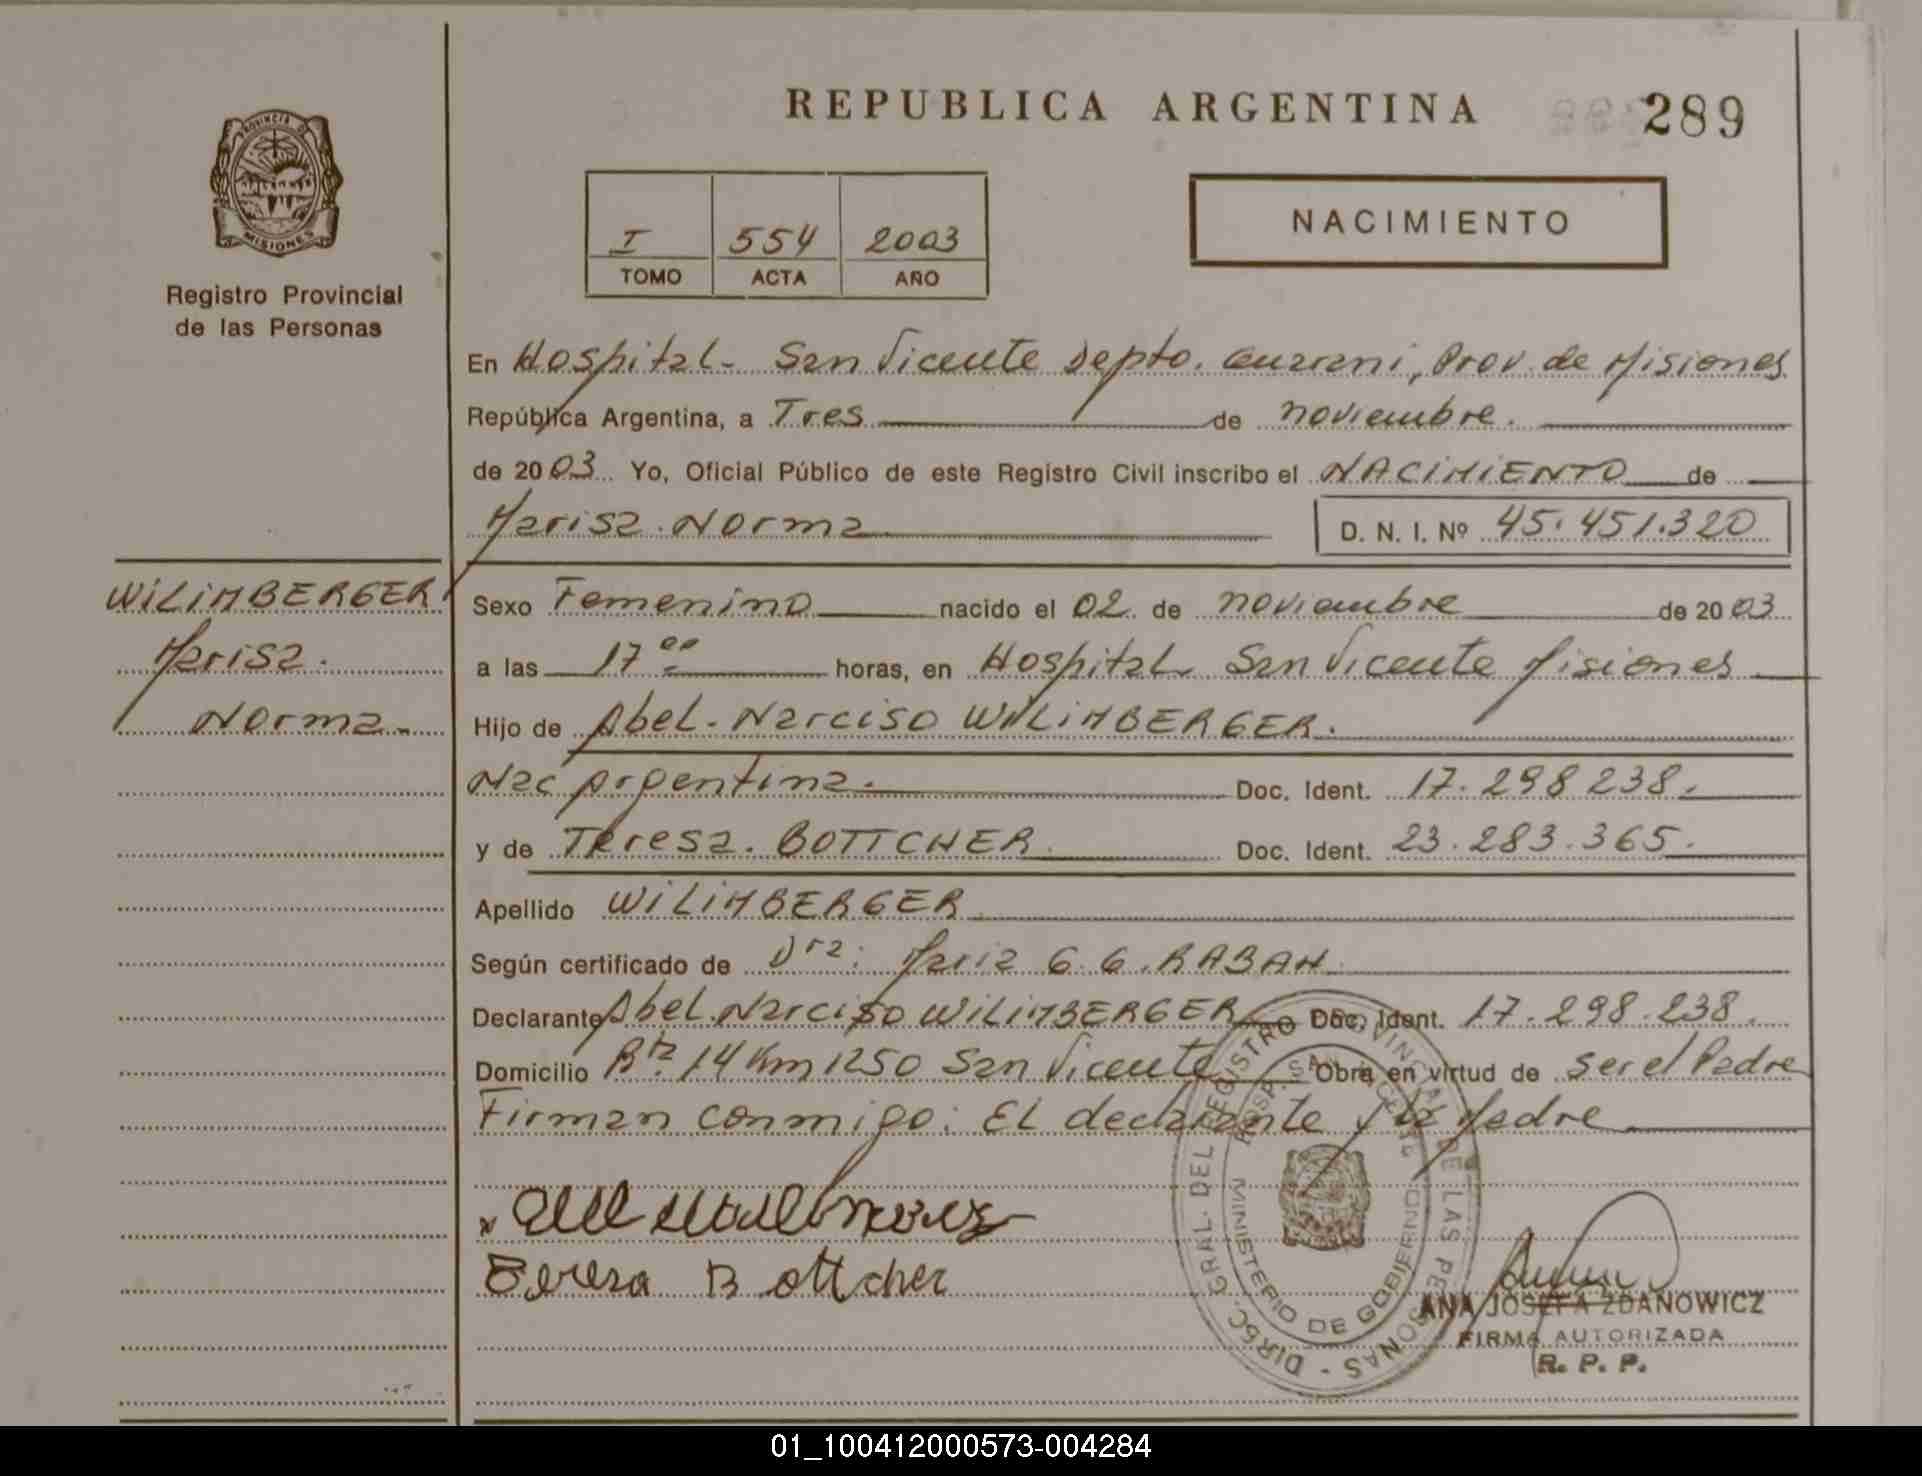 REPUBLICA ARGENTINA
289
PROVINCIA DE
MISIONES
Registro Provincial
de las Personas
I 554 2003
TOMO ACTA AÑO
NACIMIENTO
En Hospital- San Vicente Depto. Guarani, Prov. de Misiones
República Argentina, a Tres de noviembre.
de 2003 Yo, Oficial Público de este Registro Civil inscribo el NACIMIENTO de
Marisa Norma
D. N. I. Nº 45.451.320
WILIMBERGER
Marisa.
Norma.
Sexo Femenino nacido el 02 de noviembre de 2003
a las 17 00 horas, en Hospital San Vicente Misiones
Hijo de Abel Narciso WILIMBERGER.
Nac Argentina. Doc. Ident. 17.298.238.
y de Teresa. BOTTCHER Doc. Ident. 23.283.365.
Apellido WILIMBERGER
Según certificado de Dra: Maria G G. RABAH
Declarante Abel Narciso WILIMBERGER Doc. Ident. 17.298.238.
Domicilio Rta. 14 Km 1250 San Vicente Obra en virtud de Ser el Padre
Firman conmigo: El declarante y la Madre
Teresa Bottcher
DIREC. GRAL. DEL REGISTRO PROVINCIAL DE LAS PERSONAS
HOSP. SAN VICENTE
MINISTERIO DE GOBIERNO
ANA JOSEFA ZDANOWICZ
FIRMA AUTORIZADA
R. P. P.
01_100412000573-004284